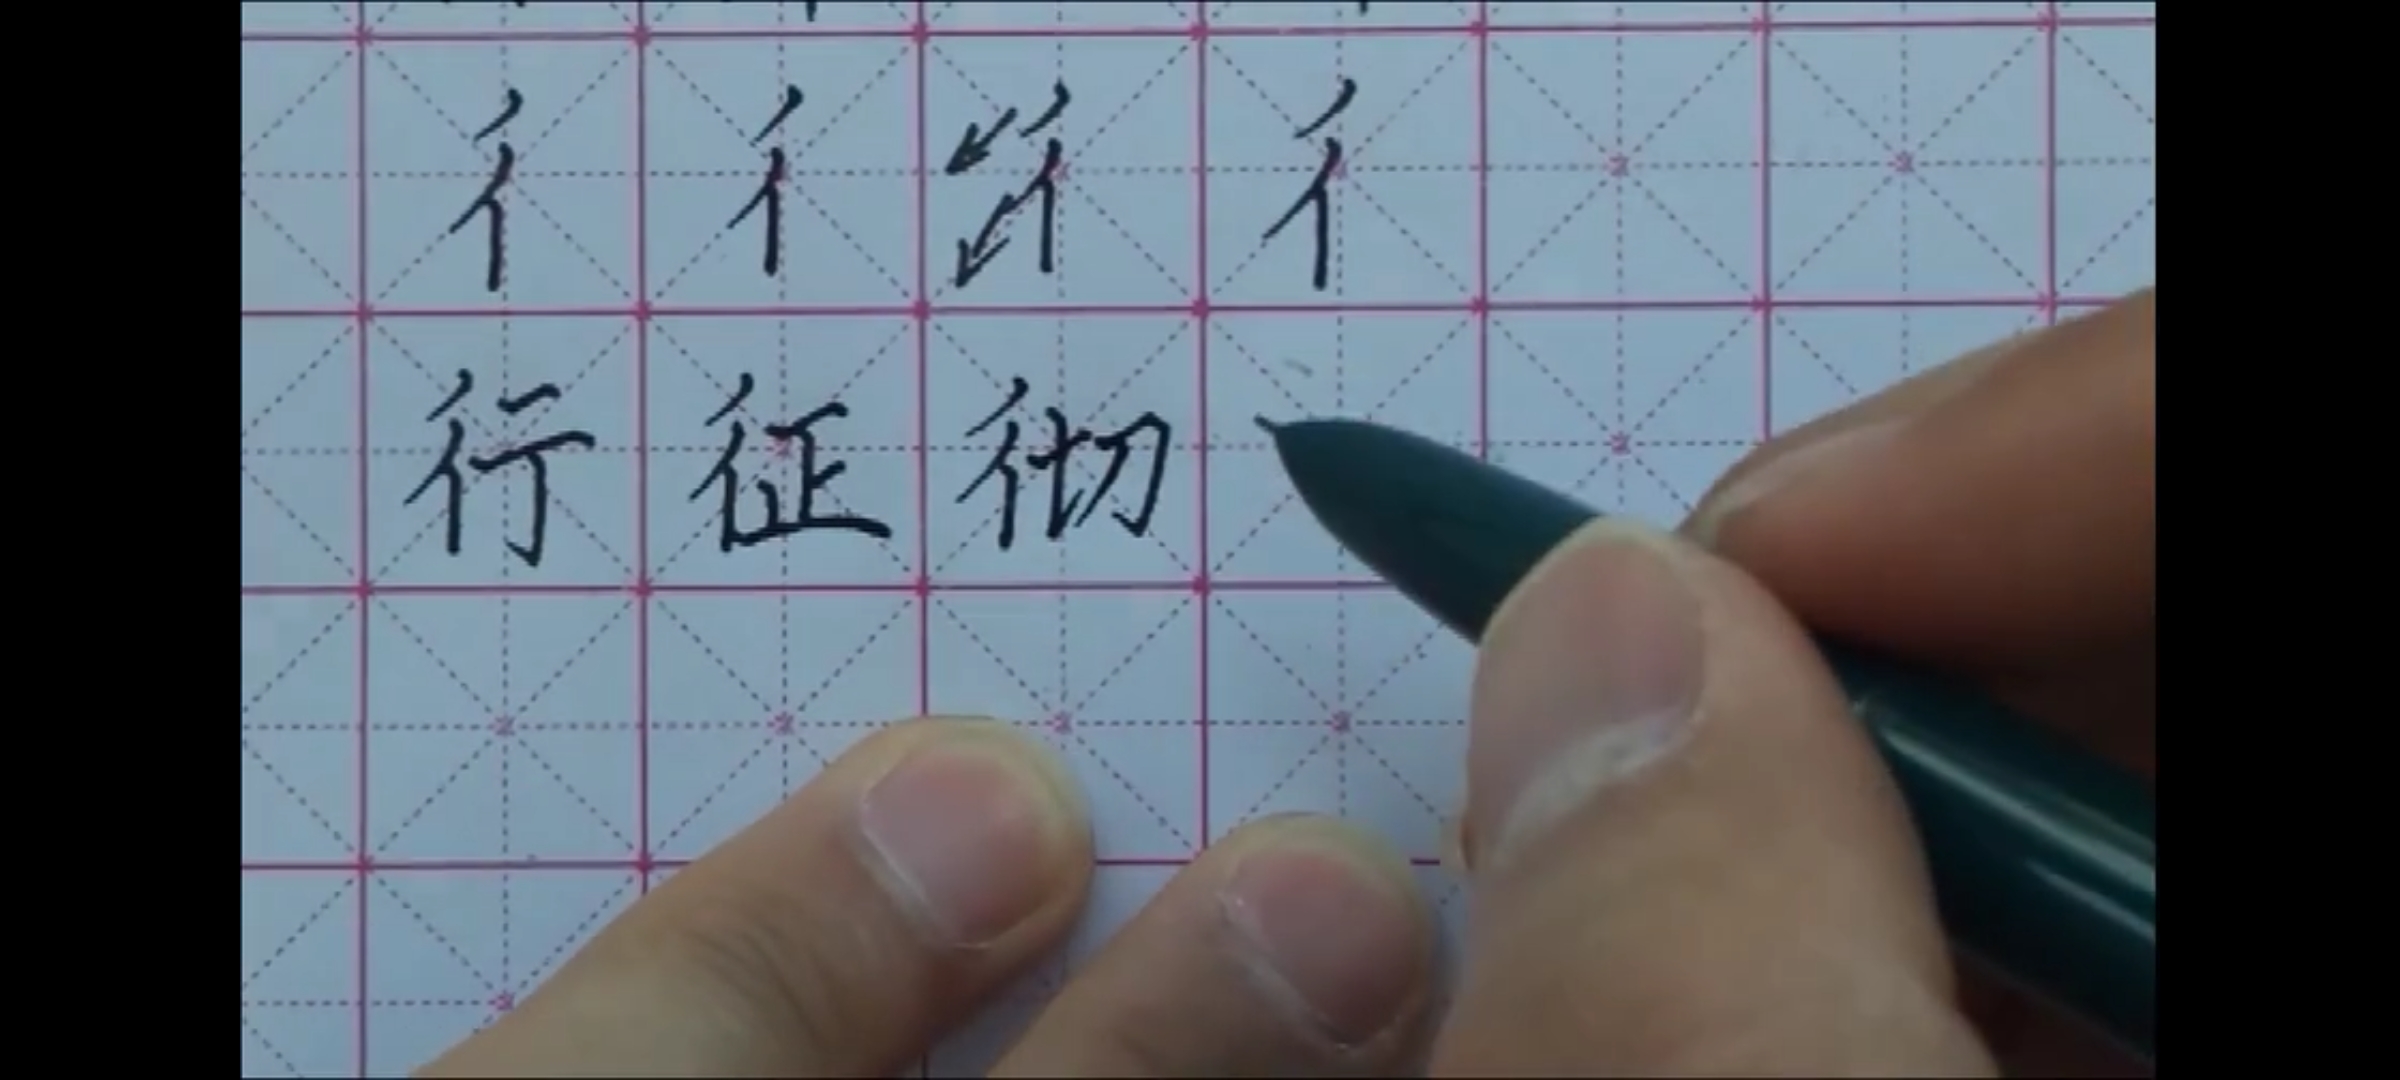 彳 彳 彳 彳
行 征 彻